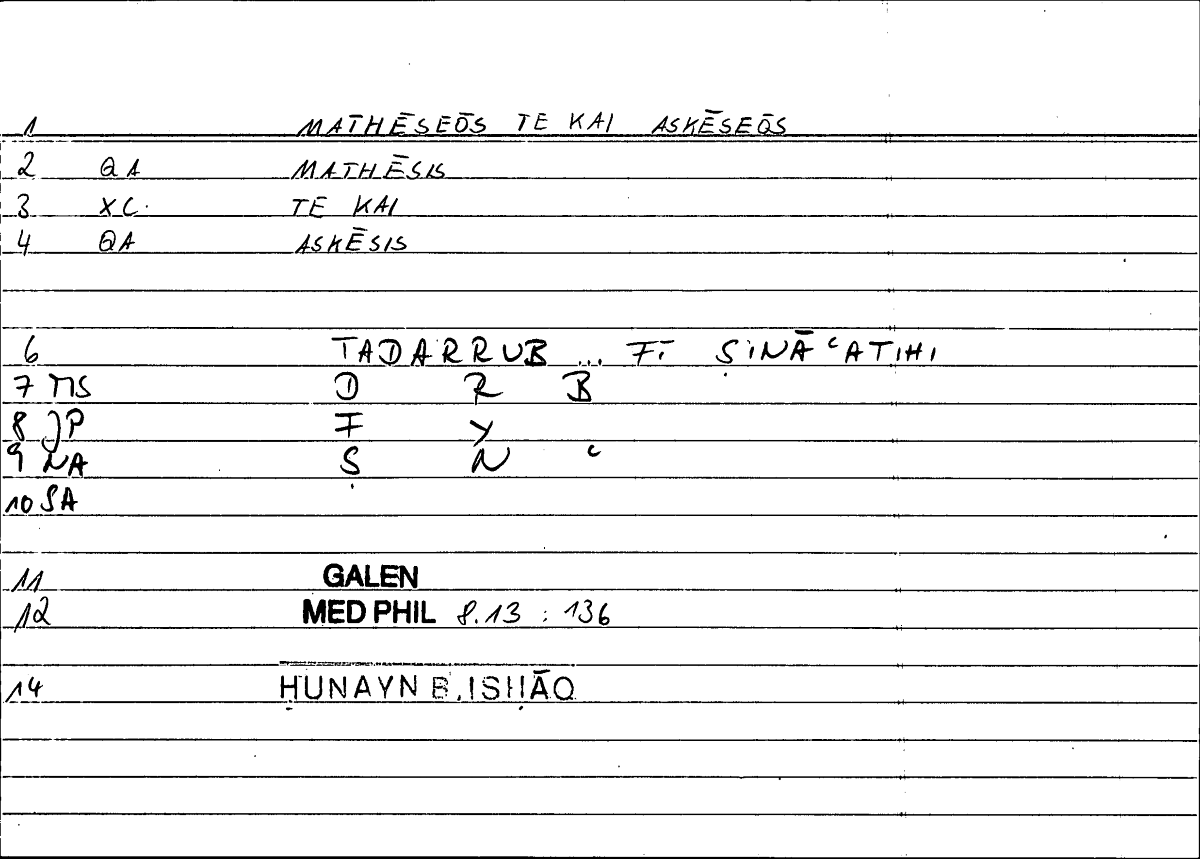 1 MATHĒSEŌS TE KAI ASKĒSEŌS
2 QA MATHĒSIS
3 XC. TE KAI
4 QA ASKĒSIS
6 TADARRUB ... FĪ ṢINĀʿATIHI
7 MS D R B
8 JP F Y
9 NA Ṣ N ʿ
10 SA
11 GALEN
12 MED PHIL 8.13 : 136
14 ḤUNAYN B. ISḤĀQ